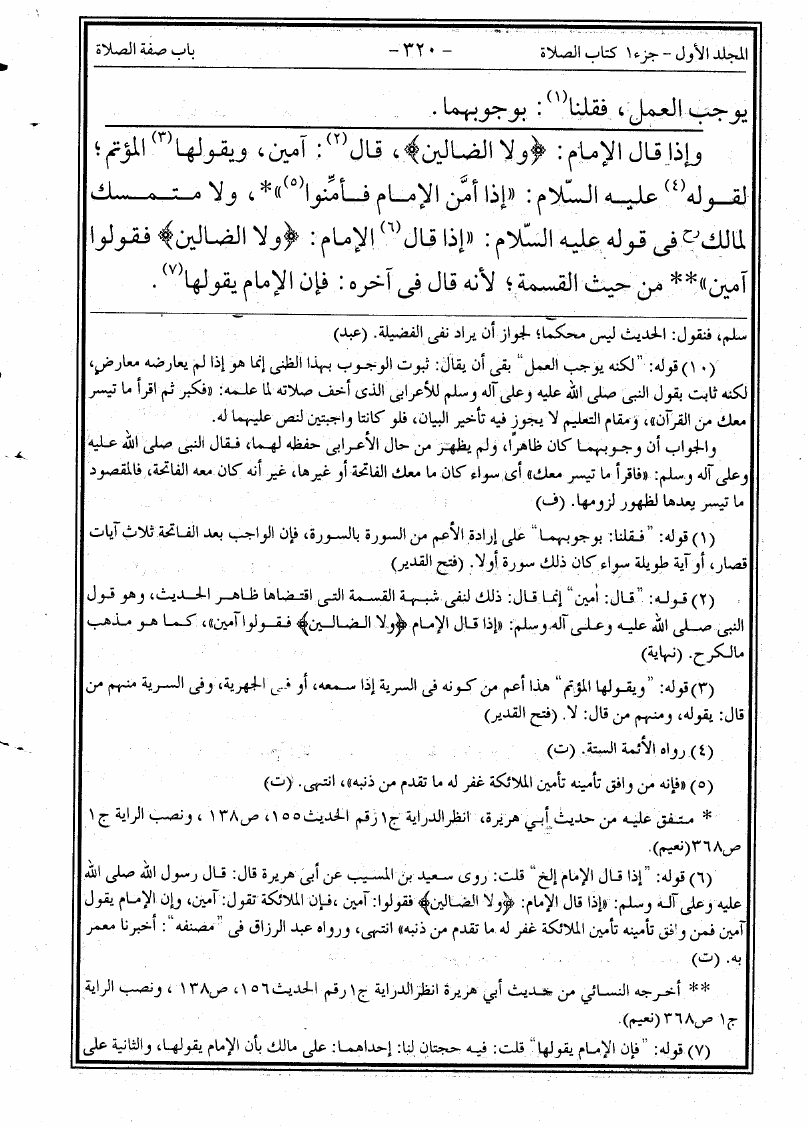 المجلد الأول - جزء١ كتاب الصلاة - ٣٢٠ - باب صفة الصلاة
يوجب العمل، فقلنا(١): بوجوبهما.
وإذا قال الإمام: ﴿ولا الضالين﴾، قال(٢): آمين، ويقولها(٣) المؤتم؛
لقوله(٤) عليه السلام: «إذا أمَّن الإمام فأمِّنوا(٥)»*، ولا متمسك
لمالكؒ فى قوله عليه السلام: «إذا قال(٦) الإمام: ﴿ولا الضالين﴾ فقولوا
آمين»** من حيث القسمة؛ لأنه قال فى آخره: فإن الإمام يقولها(٧).
سلم، فنقول: الحديث ليس محكما؛ لجواز أن يراد نفى الفضيلة. (عبد)
(١٠) قوله: "لكنه يوجب العمل" بقى أن يقال: ثبوت الوجوب بهذا الظنى إنما هو إذا لم يعارضه معارض،
لكنه ثابت بقول النبى صلى الله عليه وعلى آله وسلم للأعرابى الذى أخف صلاته لما علمه: «فكبر ثم اقرأ ما تيسر
معك من القرآن»، ومقام التعليم لا يجوز فيه تأخير البيان، فلو كانتا واجبتين لنص عليهما له.
والجواب أن وجوبهما كان ظاهرا، ولم يظهر من حال الأعرابى حفظه لهما، فقال النبى صلى الله عليه
وعلى آله وسلم: «فاقرأ ما تيسر معك» أى سواء كان ما معك الفاتحة أو غيرها، غير أنه كان معه الفاتحة، فالمقصود
ما تيسر بعدها لظهور لزومها. (ف)
(١) قوله: "فقلنا: بوجوبهما" على إرادة الأعم من السورة بالسورة، فإن الواجب بعد الفاتحة ثلاث آيات
قصار، أو آية طويلة سواء كان ذلك سورة أولا. (فتح القدير)
(٢) قوله: "قال: أمين" إنما قال: ذلك لنفى شبهة القسمة التى اقتضاها ظاهر الحديث، وهو قول
النبى صلى الله عليه وعلى آله وسلم: «إذا قال الإمام ﴿ولا الضالين﴾ فقولوا آمين»، كما هو مذهب
مالكرح. (نهاية)
(٣) قوله: "ويقولها المؤتم" هذا أعم من كونه فى السرية إذا سمعه، أو فى الجهرية، وفى السرية منهم من
قال: يقوله، ومنهم من قال: لا. (فتح القدير)
(٤) رواه الأئمة الستة. (ت)
(٥) «فإنه من وافق تأمينه تأمين الملائكة غفر له ما تقدم من ذنبه»، انتهى. (ت)
* متفق عليه من حديث أبي هريرة، انظرالدراية ج١ رقم الحديث١٥٥، ص١٣٨ ، ونصب الراية ج١
ص٣٦٨(نعيم).
(٦) قوله: "إذا قال الإمام إلخ" قلت: روى سعيد بن المسيب عن أبى هريرة قال: قال رسول الله صلى الله
عليه وعلى آله وسلم: «إذا قال الإمام: ﴿ولا الضالين﴾ فقولوا: آمين ،فإن الملائكة تقول: آمين، وإن الإمام يقول
آمين فمن وافق تأمينه تأمين الملائكة غفر له ما تقدم من ذنبه» انتهى، ورواه عبد الرزاق فى "مصنفه": أخبرنا معمر
به. (ت)
** أخرجه النسائي من حديث أبي هريرة انظرالدراية ج١ رقم الحديث١٥٦، ص١٣٨ ، ونصب الراية
ج١ ص٣٦٨ (نعيم).
(٧) قوله: "فإن الإمام يقولها" قلت: فيه حجتان لنا: إحداهما: على مالك بأن الإمام يقولها، والثانية على